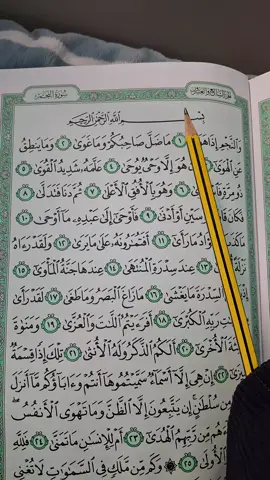 سُورَةُ النَّجْمِ
بِسْمِ اللَّهِ الرَّحْمَٰنِ الرَّحِيمِ
وَالنَّجْمِ إِذَا هَوَىٰ ١ مَا ضَلَّ صَاحِبُكُمْ وَمَا غَوَىٰ ٢ وَمَا يَنطِقُ
عَنِ الْهَوَىٰ هُوَ إِلَّا وَحْيٌ يُوحَىٰ ٤ عَلَّمَهُ شَدِيدُ الْقُوَىٰ ٥
ذُو مِرَّةٍ وَهُوَ بِالْأُفُقِ الْأَعْلَىٰ ٧ ثُمَّ دَنَا فَتَدَلَّىٰ ٨
فَكَانَ قَابَ أَوْ أَدْنَىٰ ٩ فَأَوْحَىٰ إِلَىٰ عَبْدِهِ مَا أَوْحَىٰ ١٠
مَا كَذَبَ مَا رَأَىٰ ١١ أَفَتُمَارُونَهُ عَلَىٰ مَا يَرَىٰ ١٢ وَلَقَدْ رَآهُ
نَزْلَةً ١٣ عِندَ سِدْرَةِ الْمُنتَهَىٰ ١٤ عِندَهَا جَنَّةُ الْمَأْوَىٰ ١٥
السِّدْرَةَ مَا يَغْشَىٰ ١٦ مَا زَاغَ الْبَصَرُ وَمَا طَغَىٰ ١٧ لَقَدْ رَأَىٰ
رَبِّهِ الْكُبْرَىٰ ١٨ أَفَرَأَيْتُمُ اللَّاتَ وَالْعُزَّىٰ ١٩ وَمَنَاةَ
الْأُخْرَىٰ ٢٠ أَلَكُمُ الذَّكَرُ وَلَهُ الْأُنثَىٰ ٢١ تِلْكَ إِذًا قِسْمَةٌ
إِنْ هِيَ إِلَّا أَسْمَاءٌ سَمَّيْتُمُوهَا أَنتُمْ وَآبَاؤُكُم مَّا أَنزَلَ
مِن سُلْطَانٍ إِن يَتَّبِعُونَ إِلَّا الظَّنَّ وَمَا تَهْوَى الْأَنفُسُ
مِّن رَّبِّهِمُ الْهُدَىٰ ٢٣ أَمْ لِلْإِنسَانِ مَا تَمَنَّىٰ ٢٤ فَلِلَّهِ
الْأُولَىٰ ٢٥ وَكَم مِّن مَّلَكٍ فِي السَّمَاوَاتِ لَا تُغْنِي